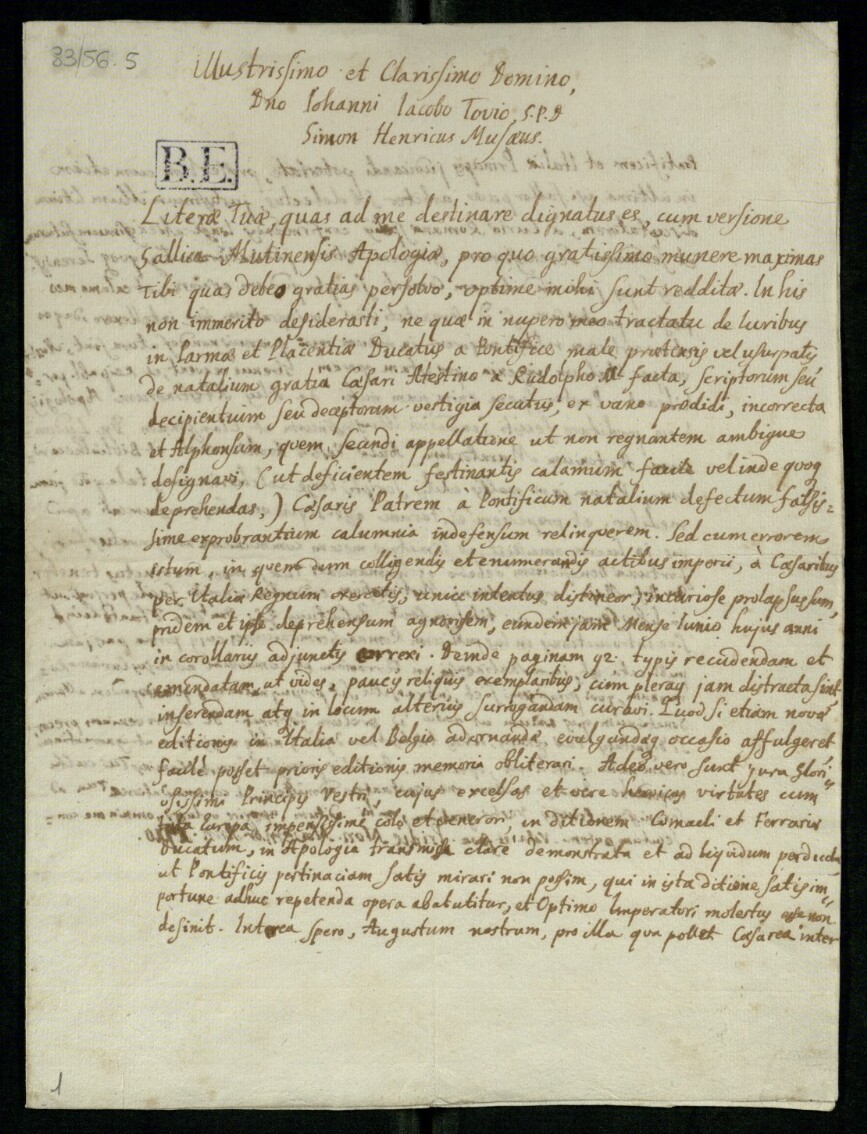 33/56. 5
Illustrissimo et Clarissimo Domino,
Dno Iohanni Iacobo Tovio, S.P.D
Simon Henricus Musæus.
B.E.
Literæ Tuæ, quas ad me destinare dignatus es, cum versione
Gallica Mutinensis Apologiæ, pro quo gratissimo munere maximas
Tibi quas debeo gratias persolvo, optime mihi sunt redditæ. In his
non immerito desiderasti, ne quæ in nupero meo tractatu de Iuribus
in Parmæ et Placentiæ Ducatus a Pontifice male prætensis vel usurpatis
de natalium gratia Cæsari Atestino a Rudolpho II facta, scriptorum seu
decipientium seu deceptorum vertigia secutus, ex vano prodidi, incorrecta
et Alphonsum, quem secundi appellatione ut non regnantem ambigue
designavi, (ut deficientem festinantis calamum facile vel inde quoq
deprehendas,) Cæsaris Patrem à Pontificum natalium defectum falsis=
sime exprobrantium calumnia indefensum relinquerem. Sed cum errorem
istum, in quem dum colligendis et enumerandis actibus imperii, à Cæsaribus
per Italiæ Regnum exercitis, unice intentus distineor, incuriose prolapsus sum,
pridem et ipse deprehensum agnorisem, eundem jam Mense Iunio hujus anni
in corollariis adjunctis correxi. Deinde paginam 92. typis recudendam et
emendatam, ut vides, paucis reliquis exemplaribus, cum pleraq jam distracta sint
inserendam atq in locum alterius surrogandam curavi. Quod si etiam novæ
editionis in Italia vel Belgio adornandæ evulgandæq occasio affulgeret
facilè posset prioris editionis memoria obliterari. Adeo vero sunt jura Glori=
osissimi Principis Vestri, cujus excelsas et vere heroicas virtutes cum
tota Europa impensissime colo et veneror, in ditionem Comacli et Ferrariæ
Ducatum, in Apologia transmissa clare demonstrata et ad liquidum perducta
ut Pontificis pertinaciam satis mirari non possim, qui in ista ditione satis im=
portune adhuc repetenda opera abatutitur, et Optimo Imperatori molestus esse non
desinit. Interea spero, Augustum nostrum, pro illa qua pollet Cæsarea inter
1